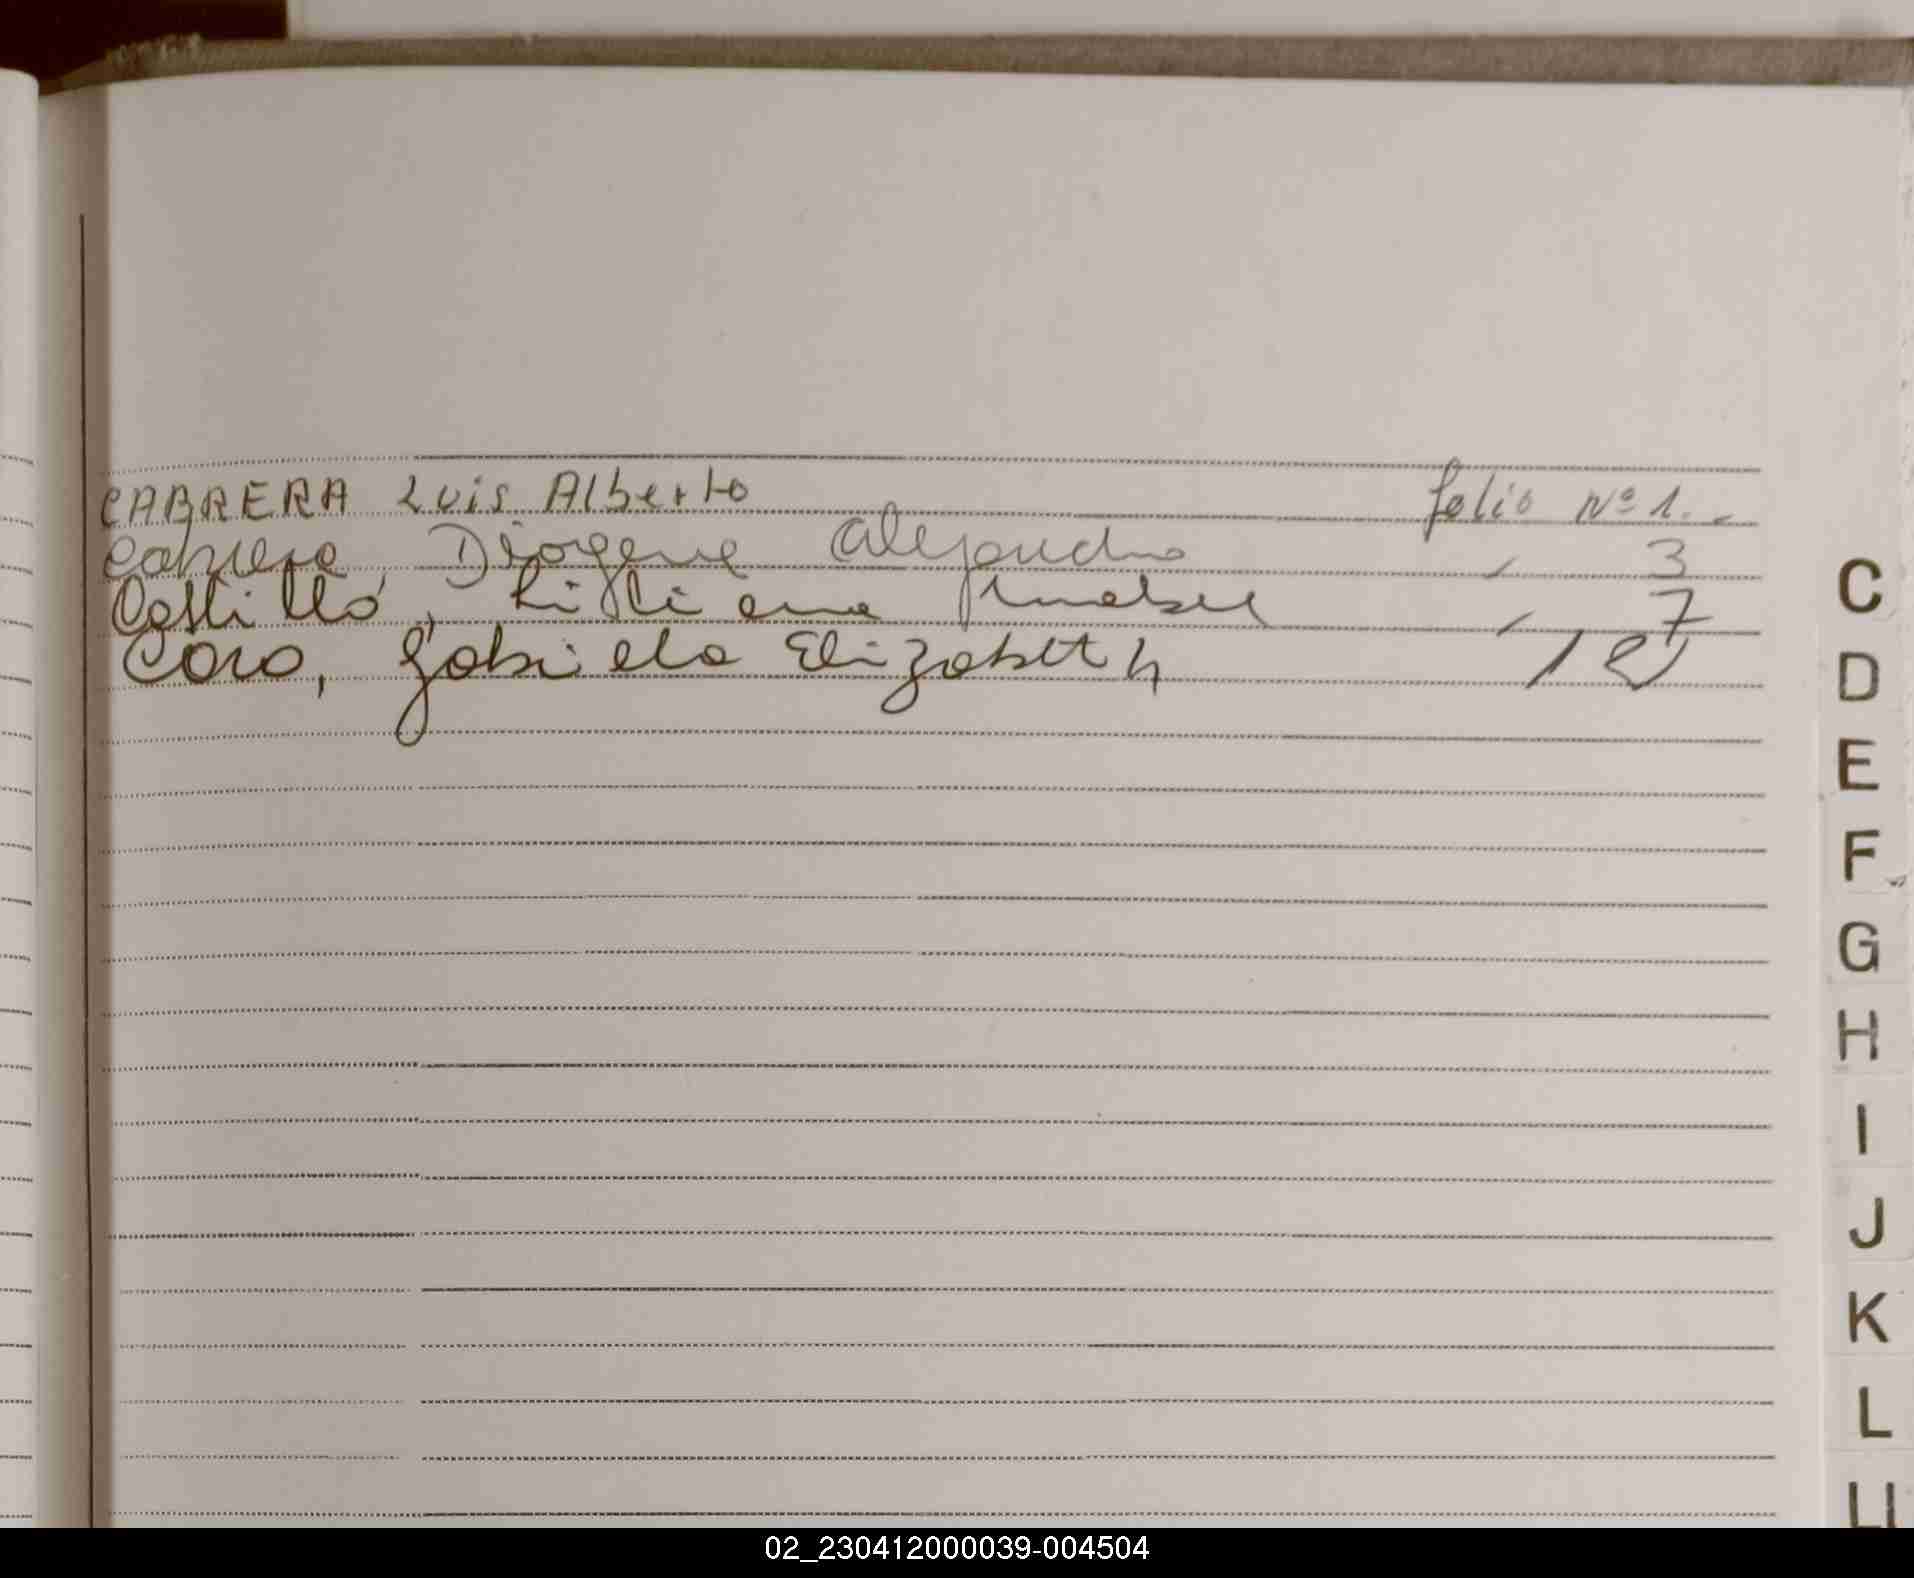 CABRERA Luis Alberto folio Nº 1.-
Cabrera, Diogene Alejandro 3
Castillo, Liliana 7
Coro, Gabriela Elizabeth
C
D
E
F
G
H
I
J
K
L
LL
02_230412000039-004504